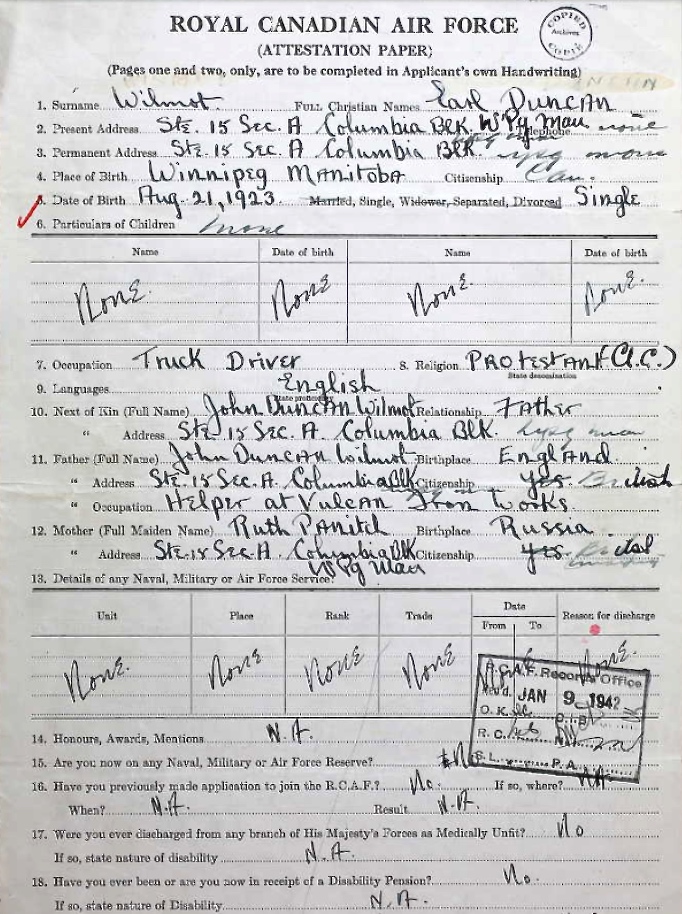 ROYAL CANADIAN AIR FORCE
(ATTESTATION PAPER)
COPIED
Archives
COPIÉ
(Pages one and two, only, are to be completed in Applicant's own Handwriting)
1. Surname Wilmot FULL Christian Names Earl Duncan
2. Present Address Ste. 15 Sec. A Columbia Blk. W'Pg Man Telephone none
3. Permanent Address Ste. 15 Sec. A Columbia Blk.
4. Place of Birth Winnipeg Manitoba Citizenship Can.
5. Date of Birth Aug. 21, 1923 Married, Single, Widower, Separated, Divorced Single
6. Particulars of Children none
Name Date of birth Name Date of birth
None. None None. None.
7. Occupation Truck Driver 8. Religion Protestant (U.C.)
State denomination
9. Languages English
10. Next of Kin (Full Name) John Duncan Wilmot Relationship Father
" Address Ste. 15 Sec. A. Columbia Blk.
11. Father (Full Name) John Duncan Wilmot Birthplace England.
" Address Ste. 15 Sec. A. Columbia Blk Citizenship yes. British
" Occupation Helper at Vulcan Iron Works
12. Mother (Full Maiden Name) Ruth Panitch Birthplace Russia
" Address Ste. 15 Sec. A Columbia Blk Citizenship yes.
W'Pg Man
13. Details of any Naval, Military or Air Force Service?
Unit Place Rank Trade Date Reason for discharge
From To
None. None None None None.
R.C.A.F. Records Office
Rec'd. JAN 9 1942
O.K. C.I.B
R.C.
S.L. P.A.
14. Honours, Awards, Mentions N.A.
15. Are you now on any Naval, Military or Air Force Reserve? No
16. Have you previously made application to join the R.C.A.F.? No. If so, where? N.A.
When? N.A. Result N.A.
17. Were you ever discharged from any branch of His Majesty's Forces as Medically Unfit? No
If so, state nature of disability N.A.
18. Have you ever been or are you now in receipt of a Disability Pension? No.
If so, state nature of Disability N.A.